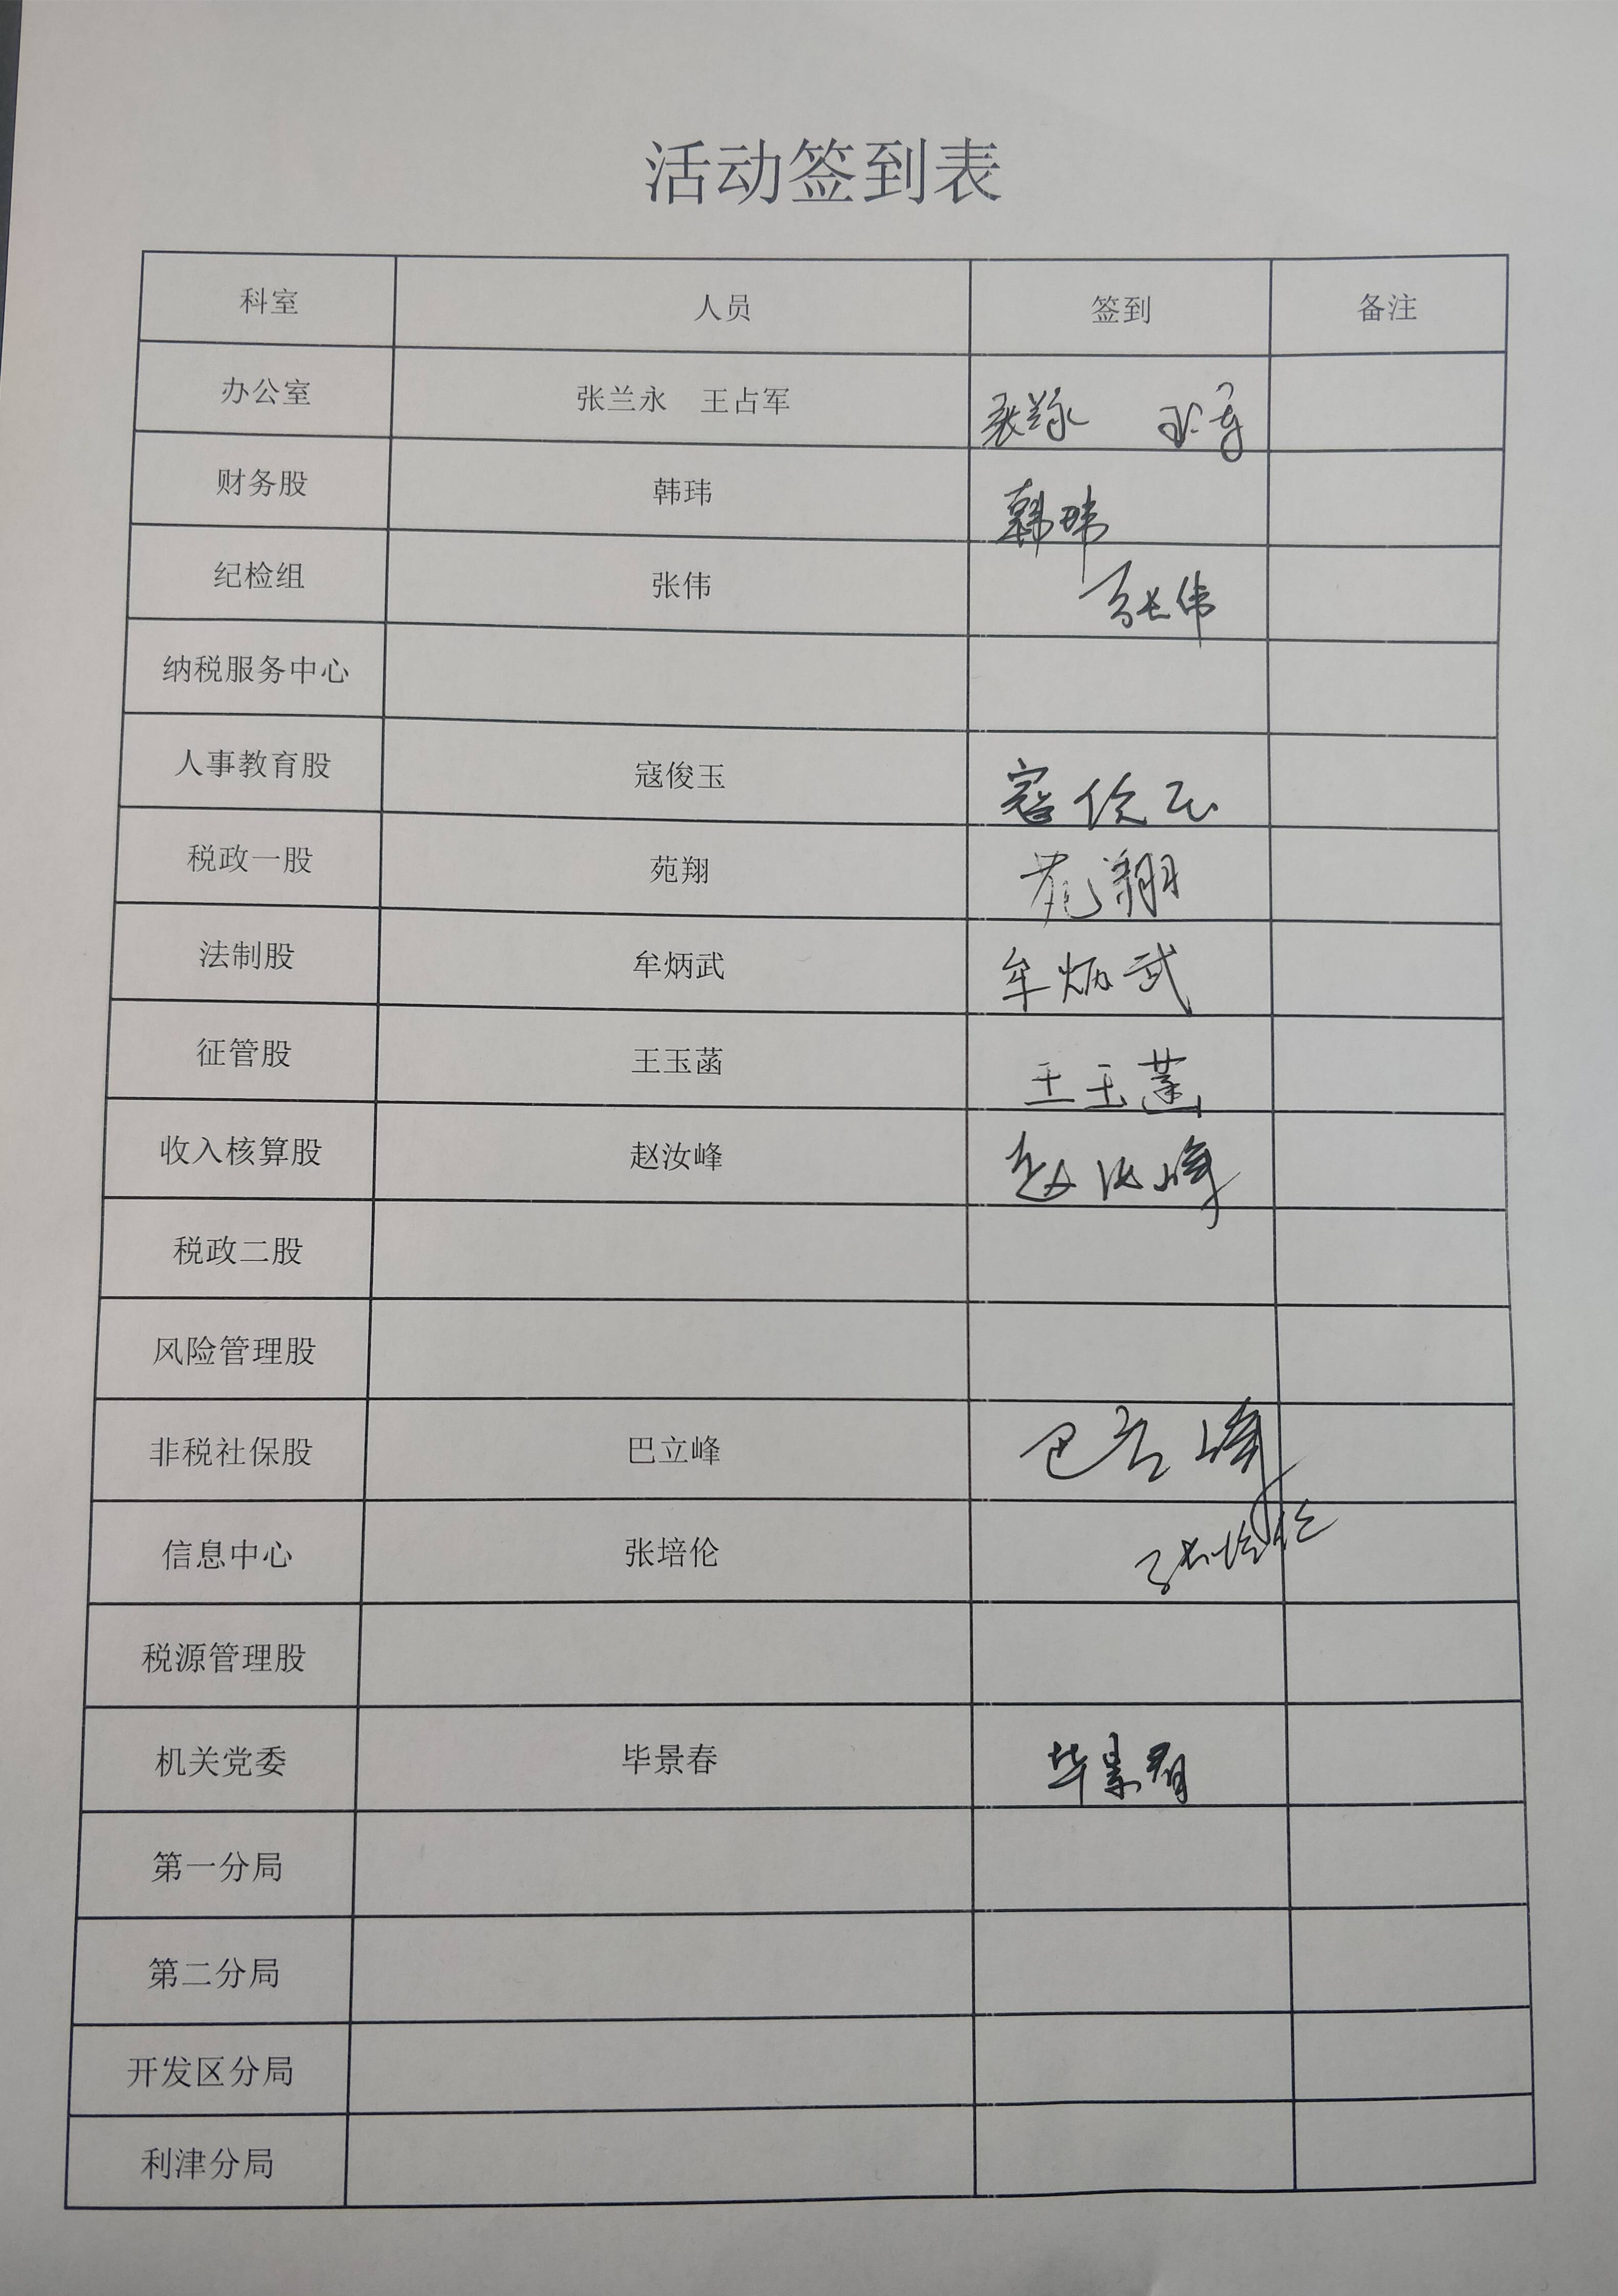 活动签到表
科室 人员 签到 备注
办公室 张兰永 王占军 张兰永 王占军
财务股 韩玮 韩玮
纪检组 张伟 张伟
纳税服务中心
人事教育股 寇俊玉 寇俊玉
税政一股 苑翔 苑翔
法制股 牟炳武 牟炳武
征管股 王玉菡 王玉菡
收入核算股 赵汝峰 赵汝峰
税政二股
风险管理股
非税社保股 巴立峰 巴立峰
信息中心 张培伦 张培伦
税源管理股
机关党委 毕景春 毕景春
第一分局
第二分局
开发区分局
利津分局